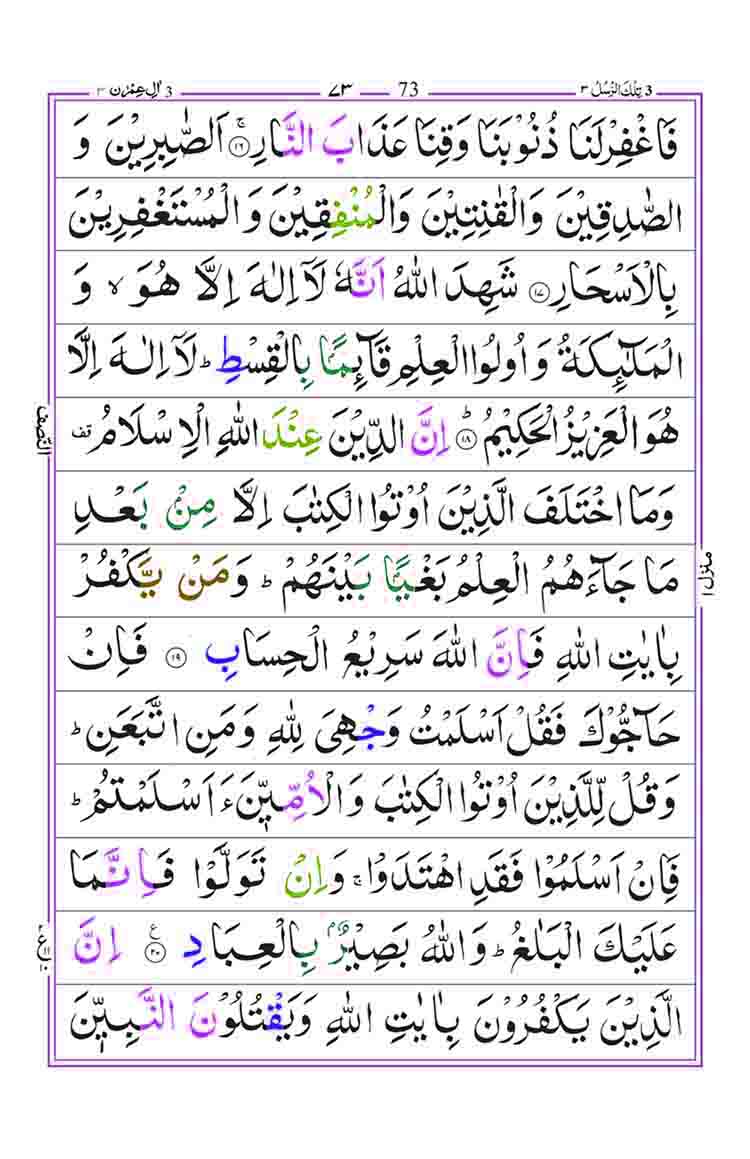 3 تِلْكَ الرُّسُلُ ٣ 73 ٧٣ 3 اٰلِ عِمْرٰن ٣
فَاغْفِرْلَنَا ذُنُوْبَنَا وَقِنَا عَذَابَ النَّارِۚ‏﴿۱۶﴾ اَلصّٰبِرِيْنَ وَ
الصّٰدِقِيْنَ وَالْقٰنِتِيْنَ وَالْمُنْفِقِيْنَ وَ الْمُسْتَغْفِرِيْنَ
بِالْاَسْحَارِ ﴿۱۷﴾ شَهِدَ اللّٰهُ اَنَّهٗ لَاۤ اِلٰهَ اِلَّا هُوَ ۙ وَ
الْمَلٰٓئِكَةُ وَ اُولُوا الْعِلْمِ قَآئِمًاۢ بِالْقِسْطِ ؕ لَاۤ اِلٰهَ اِلَّا
هُوَ الْعَزِيْزُ الْحَكِيْمُ ؕ ﴿۱۸﴾ اِنَّ الدِّيْنَ عِنْدَ اللّٰهِ الْاِسْلَامُ قف
وَمَا اخْتَلَفَ الَّذِيْنَ اُوْتُوا الْكِتٰبَ اِلَّا مِنْۢ بَعْدِ
مَا جَآءَهُمُ الْعِلْمُ بَغْيًاۢ بَيْنَهُمْ ؕ وَمَنْ يَّكْفُرْ
بِاٰيٰتِ اللّٰهِ فَاِنَّ اللّٰهَ سَرِيْعُ الْحِسَابِ ﴿۱۹﴾ فَاِنْ
حَآجُّوْكَ فَقُلْ اَسْلَمْتُ وَجْهِىَ لِلّٰهِ وَمَنِ اتَّبَعَنِ ؕ
وَقُلْ لِّلَّذِيْنَ اُوْتُوا الْكِتٰبَ وَالْاُمِّيّٖنَ ءَاَسْلَمْتُمْ ؕ
فَاِنْ اَسْلَمُوْا فَقَدِ اهْتَدَوْا ۚ وَاِنْ تَوَلَّوْا فَاِنَّمَا
عَلَيْكَ الْبَلٰغُ ؕ وَاللّٰهُ بَصِيْرٌۢ بِالْعِبَادِ ﴿۲۰﴾ ع اِنَّ
الَّذِيْنَ يَكْفُرُوْنَ بِاٰيٰتِ اللّٰهِ وَيَقْتُلُوْنَ النَّبِيّٖنَ
النّصف
منزل ١